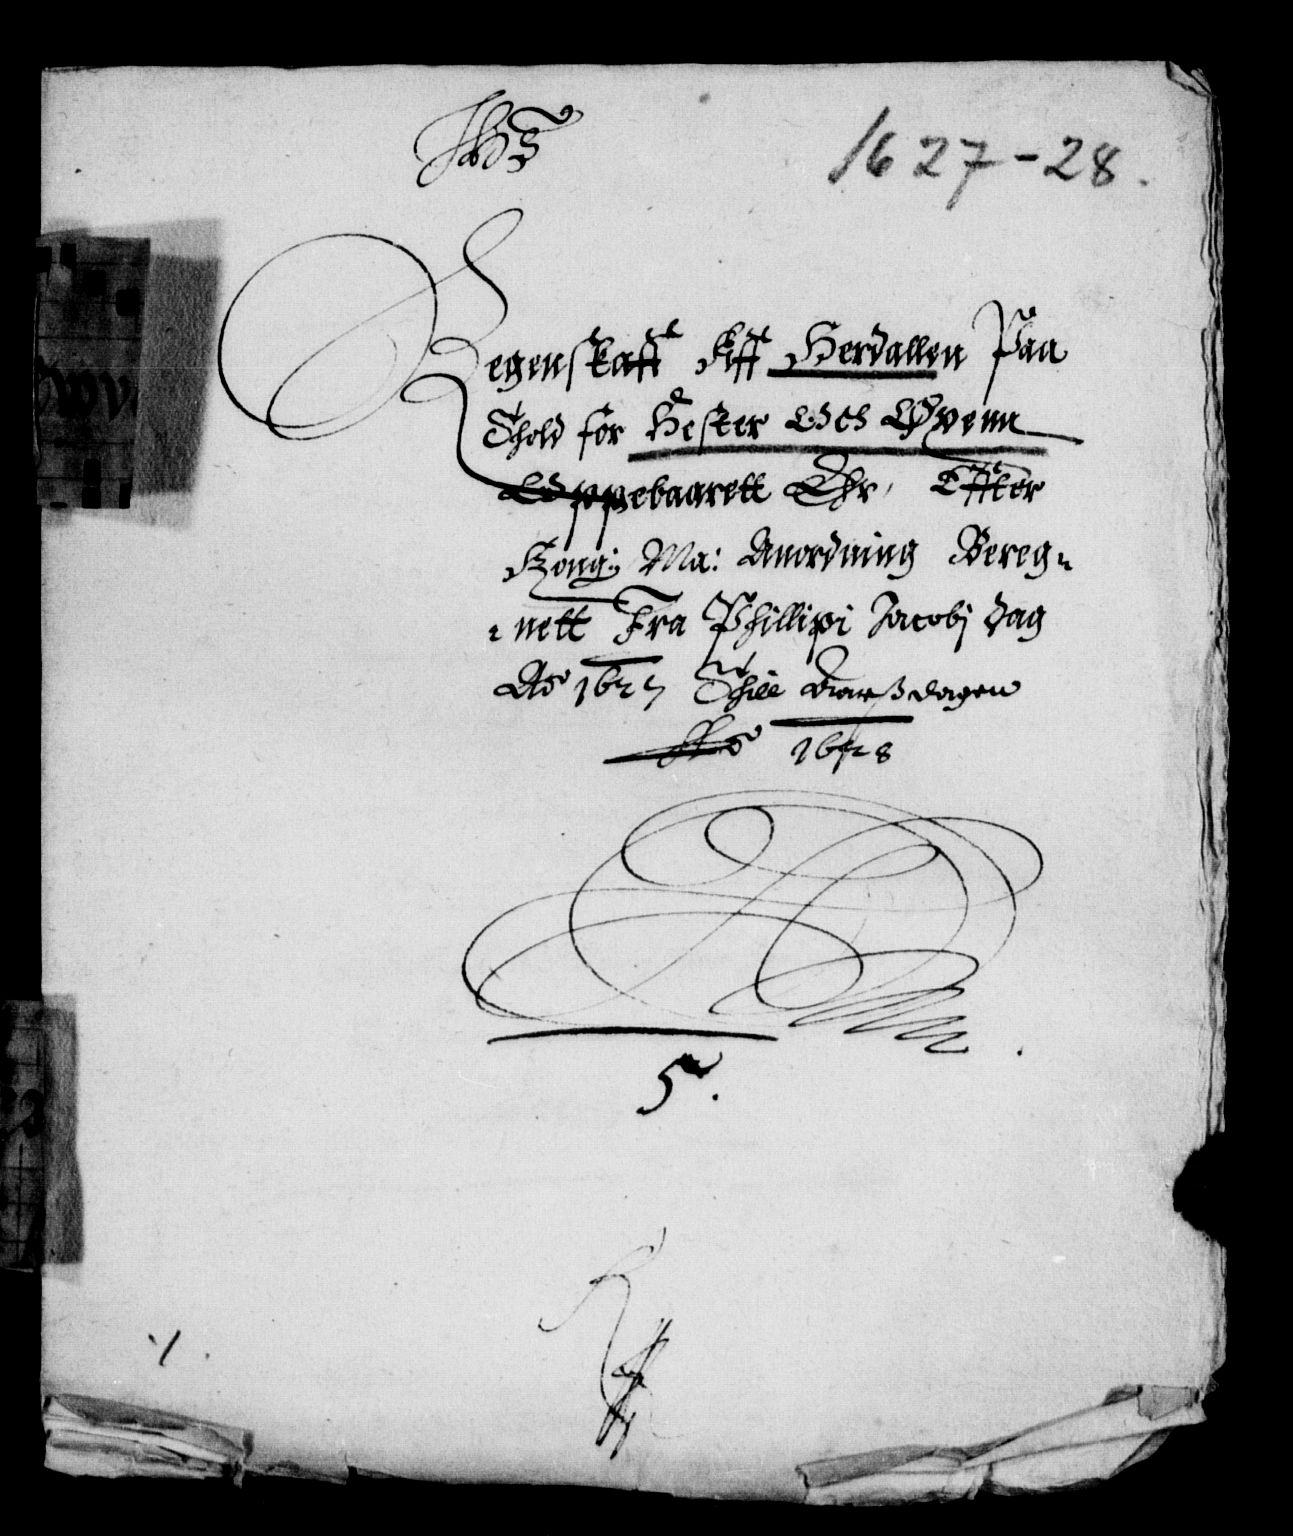 1627-28.
Regenskaff Aff Herdallen Paa
Thold for Hester Och Øxenn
Oppebaarett Ehr, Effter
Kong: Ma: Anordning Bereg-
-nett Fra Phillipi Jacobj Dag
Ao 1627 Thill Aarßdagen
Ao 1628
5.
1.